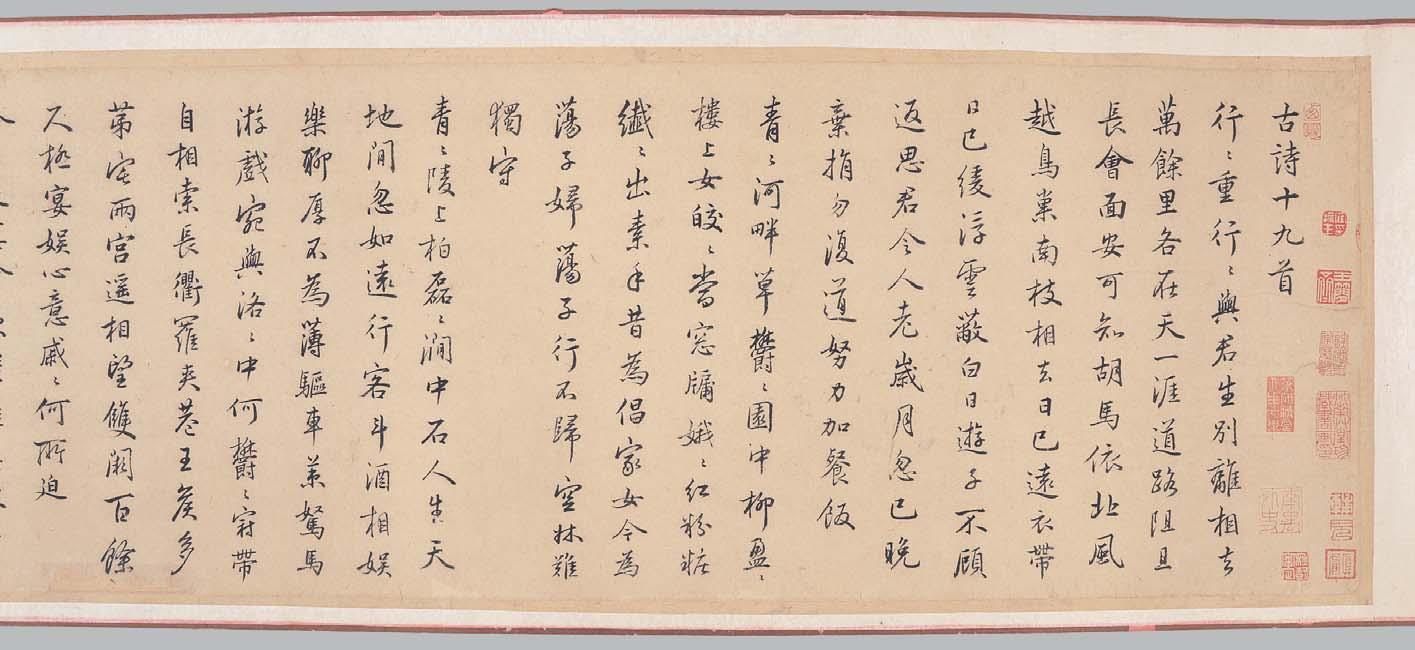 古詩十九首
行〻重行〻與君生別離相去
萬餘里各在天一涯道路阻且
長會面安可知胡馬依北風
越鳥巢南枝相去日已遠衣帶
日已緩浮雲蔽白日遊子不顧
返思君令人老歲月忽已晚
棄捐勿復道努力加餐飯
青〻河畔草欝〻園中柳盈〻
樓上女皎〻當窓牖娥〻紅粉粧
纖〻出素手昔為倡家女今為
蕩子婦蕩子行不歸空牀難
獨守
青〻陵上柏磊〻澗中石人生天
地間忽如遠行客斗酒相娛
樂聊厚不為薄驅車策駑馬
游戲宛與洛〻中何欝〻冠帶
自相索長衢羅夾巷王侯多
第宅兩宮遥相望雙闕百餘
尺極宴娛心意戚〻何所迫